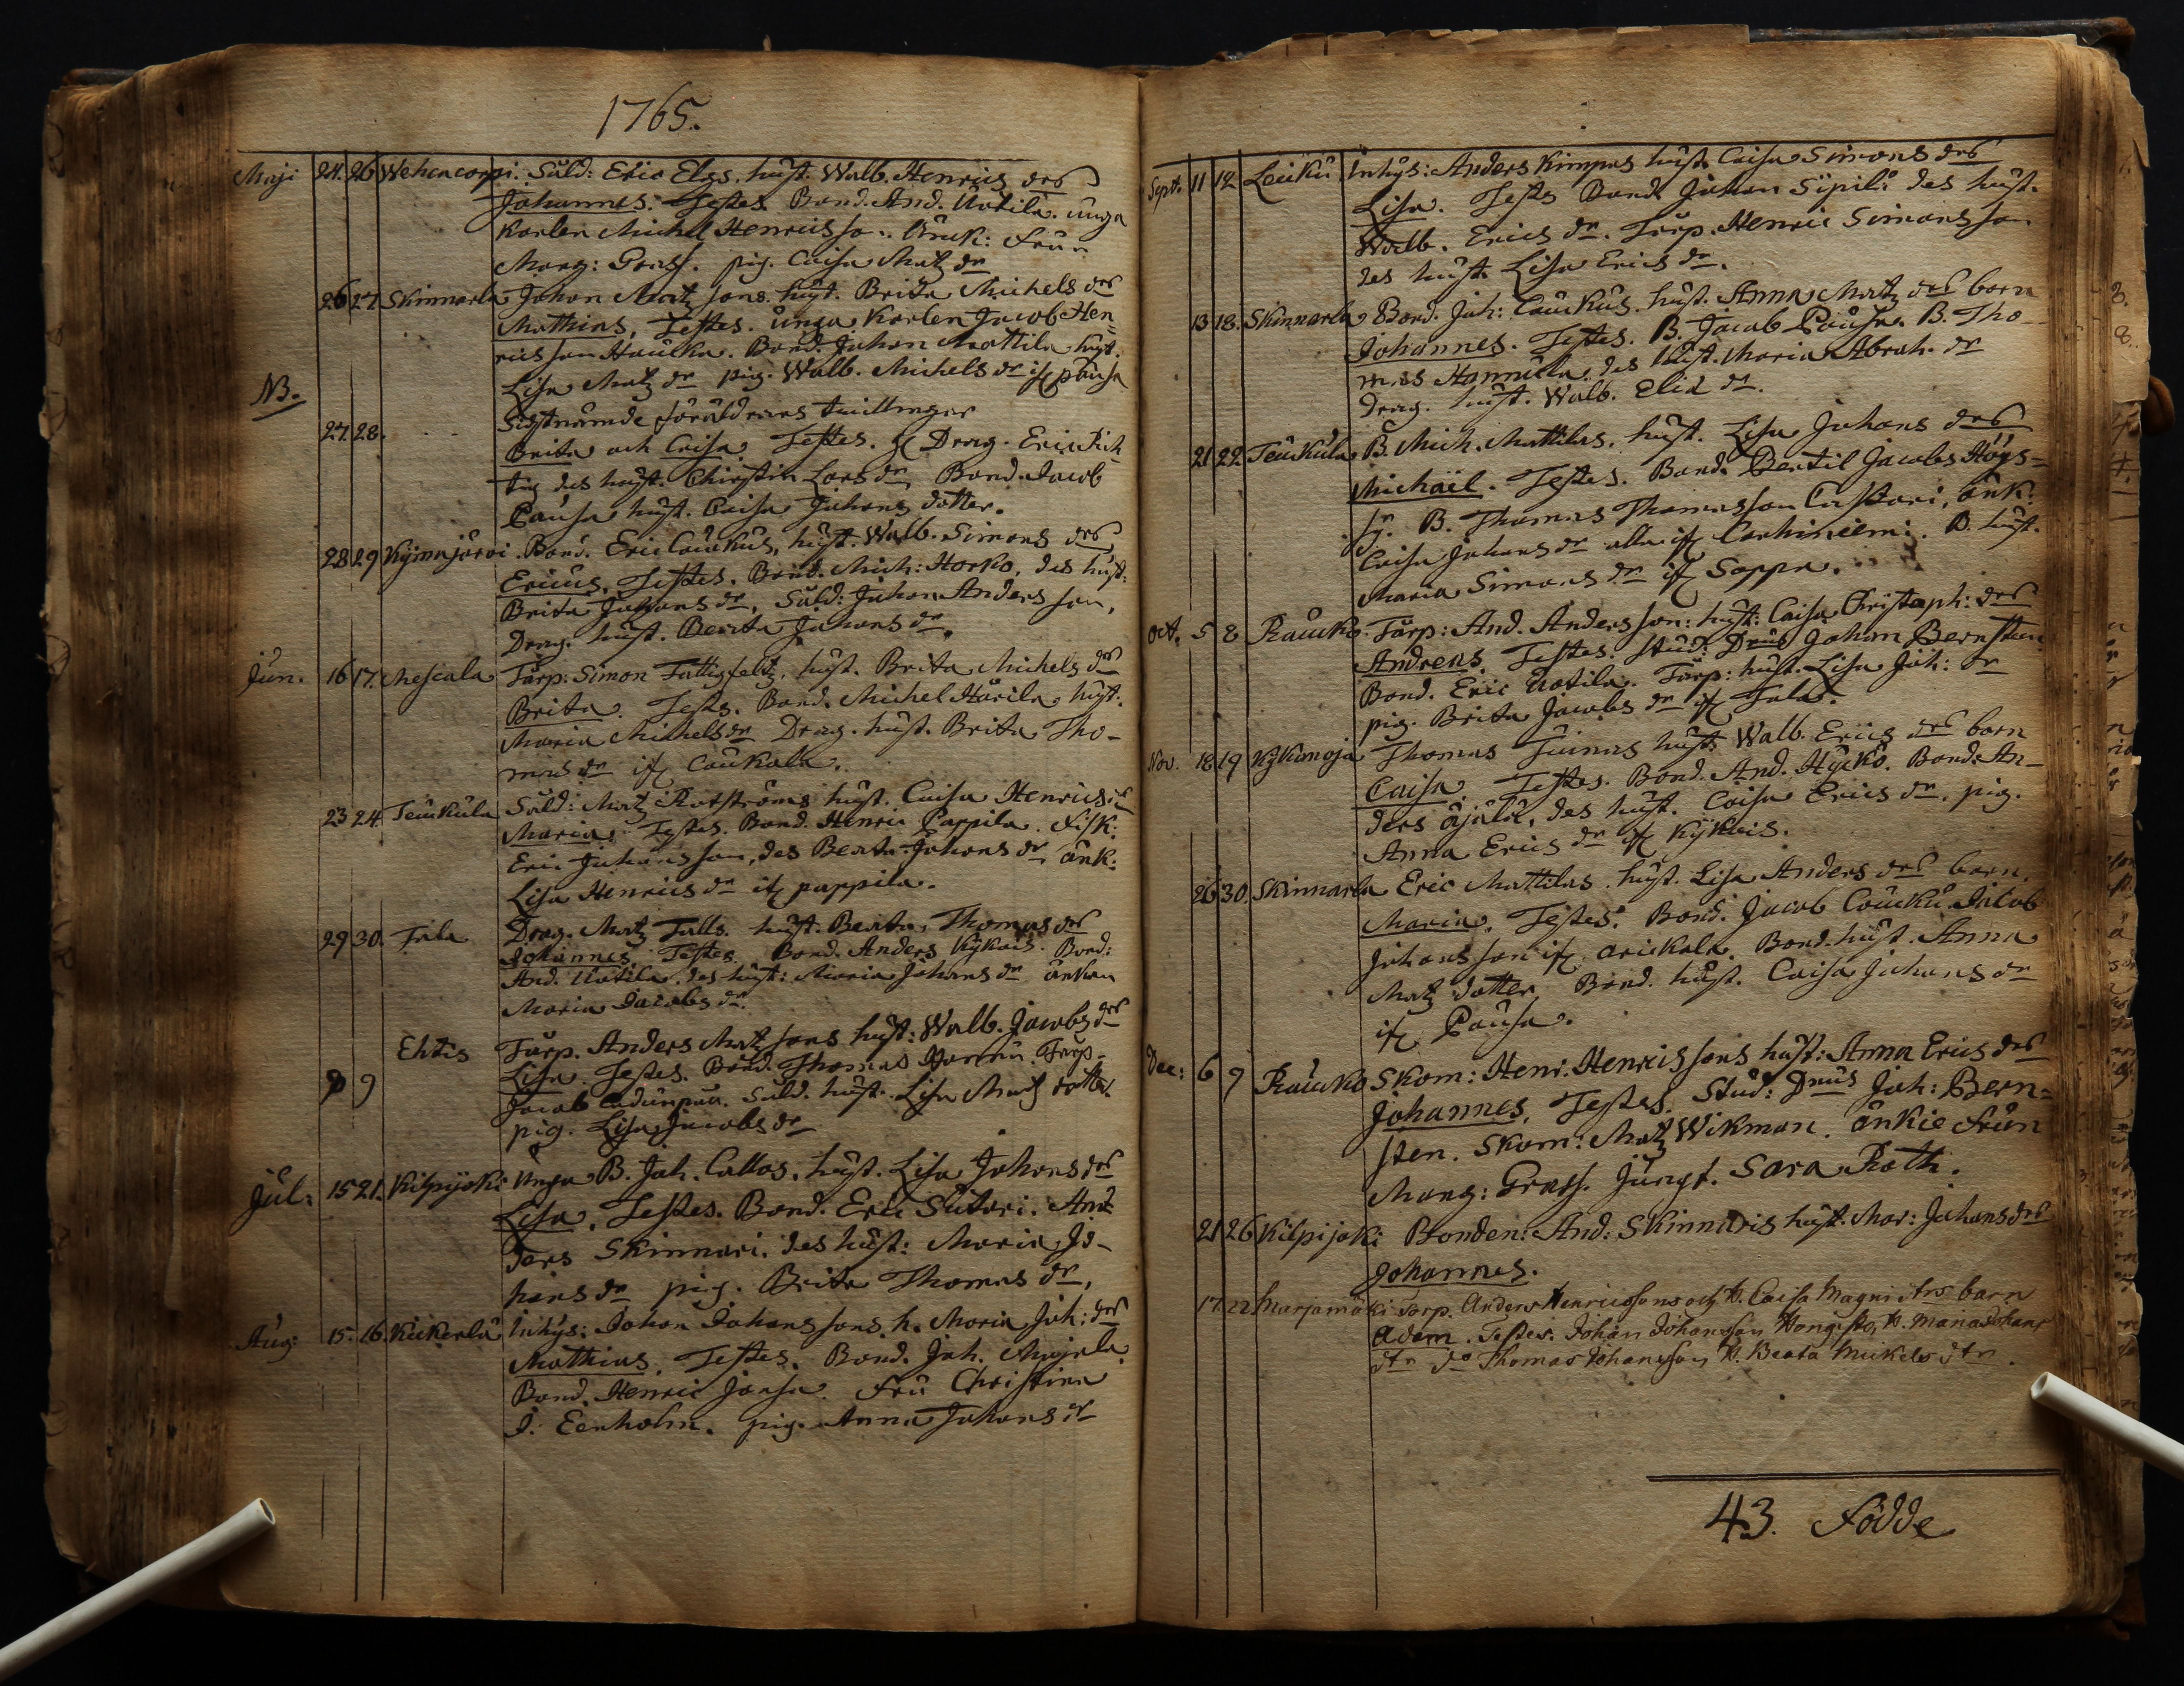 1765.
Maji 24. 26 Wehcacorpi. Såld: Eric Elgs. hust. Walb. Henrics drs
Johannes. Testes. Bond. And. Uotila. unga
Karlen Michel Henricsson. Enk: Frun
Marg: Grass. pig. Caisa Matz dr
26 27 Skinnarla Johan Matz sons hust. Brita Michels drs
Mathias, Testes. unga Karlen Jacob Hen-
ricsson Haucka. Bond. Johan Mattila hust.
Lisa Matz dr pig. Walb. Michels dr if Pausa
NB. Sistnämde föräldrars twillingar
27. 28. Brita och Caisa. Testes. Drag. Eric
des hust. Christin Lars dr, Bond. Jacob
Pausa hust. Caisa Johans dotter.
28 29 Kijmajärvi. Bond. Eric Caukus, hust. Walb. Simons drs
Ericus. Testes. Bond. Mich: Horko, des hust:
Brita Johans dr, Såld: Johan Anders son,
Drag. hust. Beata Johans dr.
Jun. 16 17. Mescala Torp: Simon Fattigfeltz, hust. Brita Michels drs
Brita. Testes. Bond. Michel Härila hust.
Maria Michels dr Drag. hust. Brita Tho-
mas dr if Caukola.
23 24. Teuckula Såld: Matz Rotströms hust. Caisa Henrics drs
Maria. Testes. Bond. Henric Pappila. Fisk:
Eric Johansson, des Beata Johans dr, änk:
Lisa Henrics dr if pappila.
29 30. Tala Drag. Matz Talls. hust. Beata Thomas drs
Johannes. Testes. Bond. Anders Kykeis. Bond:
And. Uotila, des hust: Maria Johans dr änkan
Maria Jacobs dr.
Ehtis Torp. Anders Matz sons hust: Walb. Jacobs drs
9 Lisa. Testes. Bond. Thomas Torp-
Jacob Såld. hust. Lisa Matz dotter.
pig. Lisa Jacobs dr
Jul: 15 21. Kilpijoki Unga B. Joh. Callas, hust. Lisa Johans drs
Lisa. Testes. Bond. Eric Sutari. An-
ders Skinnari. des hust: Maria Jo-
hans dr pig. Brita Thomas dr,
Aug: 15. 16. Kuckerla Inhys: Johan Johans sons h. Maria Joh: drs
Mathias. Testes. Bond. Joh.
Bond. Henric Jansa. Fru Christina
J. Eenholm. pig. Anna Johans dr
Sept. 11 12 Leuku Inhys: Anders Kimpas hust. Caisa Simons drs
Lisa. Testes Bond Johan Sipilä des hust.
Walb. Erics dr. Torp. Henric Simons son
des hust. Lisa Erics dr.
13 18. Skinnarla Bond. Joh: Caukus. hust. Anna Matz drs barn
Johannes. Testes. B. Jacob Pausa. B. Tho-
mas Hannula, des hust. Maria Abrah. dr
Drag. hust. Walb. Elia dr.
21 22 Teuckula B. Mich. Mattilas. hust. Lisa Johans drs
Michaël. Testes. Bond. Bertil Jacobs Höys-
B. Thomas Thomasson Castari, änk:
Caisa Johans dr alla if Carhiniemi. B. hust.
Maria Simons dr if Soppa.
Oct. 5 8 Raucko Torp: And. Anders son: hust: Caisa Christoph: drs
Andreas. Testes. Stud: Dnus Johan Bernsteen
Bond. Eric Uotila. Torp: hust. Lisa Joh: dr
pig. Brita Jacobs dr if Tala.
Nov. 18 19 Kykänoja Thomas Tuimas hust. Walb. Erics drs barn
Caisa. Testes. Bond. And. Hycko. Bond. An-
ders äjälä, des hust. Caisa Erics dr, pig.
Anna Erics dr if Kykeis.
26 30. Skinnarla Eric Mattilas hust. Lisa Anders drs barn.
Maria. Testes. Bond. Jacob Caucku. Jacob
Johansson if arickala. Bond. hust. Anna
Matz dotter, Bond. hust. Caisa Johans dr
if Pausa.
Dec: 6 9 Raucko Skom: Henr. Henrics sons hust: Anna Erics drs
Johannes, Testes. Stud: Dnus Joh: Bern-
sten. Skom: Matz Wikman. änkie Frun
Marg: Grass. Jungf. Sara Roth.
21 26 Kilpijoki Bonden: And: Skinnaris hust. Mar: Johans drs
Johannes.
17. 22 Marjamäki Torp. Anders Henricssons och H. Caisa Magni dtrs barn
Adam. Testes: Johan Johansson Hongisto, H. Maria Johans
dtr do Thomas Johansson H. Beata Mickels dtr.
43. Födde